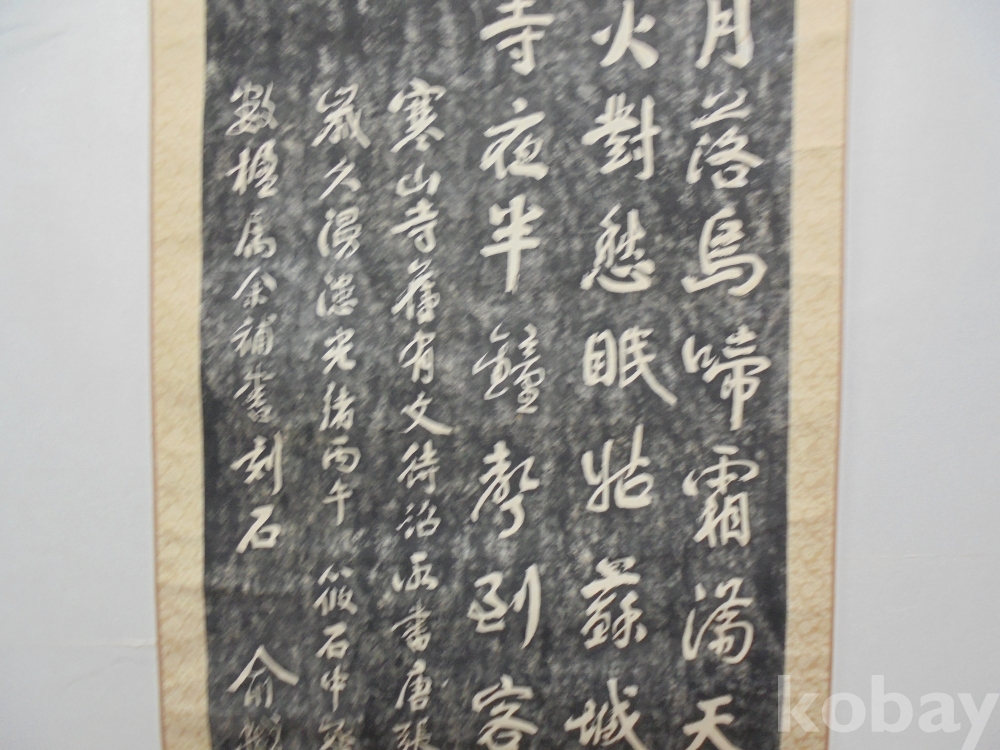 月落烏啼霜满天
火對愁眠姑蘇城
寺夜半鐘聲到客
寒山寺舊有文待詔所書唐張
歲久漫漶光緒丙午筱石中丞
數楹屬余補書刻石俞樾
kobay